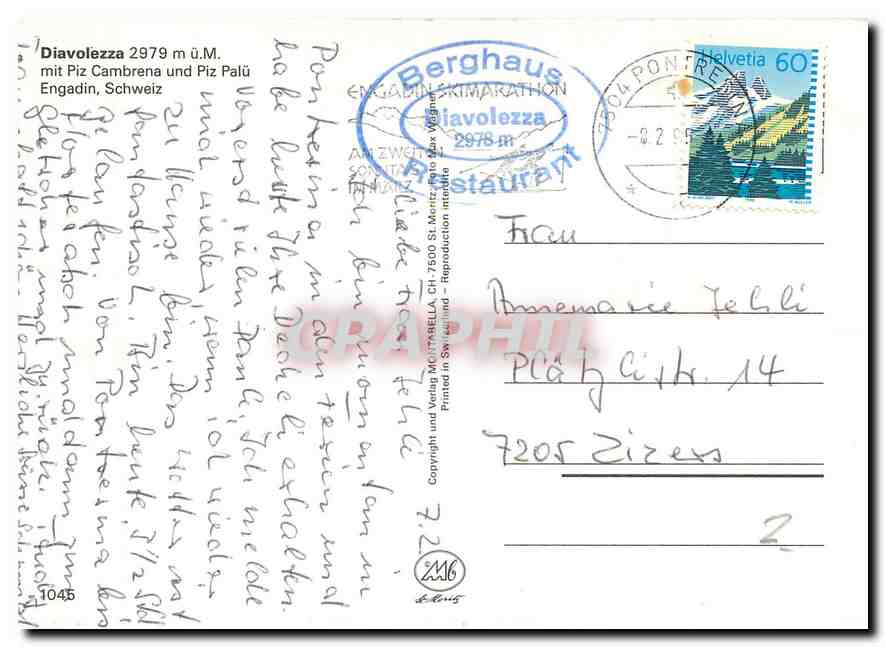 Diavolezza 2979 m ü.M.
mit Piz Cambrena und Piz Palü
Engadin, Schweiz
Berghaus
Diavolezza
2978 m
Restaurant
ENGADIN SKIMARATHON
AM ZWEITEN
SONNTAG
IM MÄRZ
7504 PONTRESINA
Helvetia 60
Frau
Annemarie Jehli
Plätzlistr. 14
7205 Zizers
2
Liebe Frau Jehli
Ich bin momentan in
Pontresina in den Ferien und
habe heute Ihre Deckeli erhalten.
Vorerst vielen Dank, ich melde
mich wieder, wenn ich wieder
zu Hause bin. Das Wetter ist
fantastisch. Bin heute 5 1/2 Std
gelaufen. Von Pontresina bis
Morteratsch und dann zum
Gletscher und zurück.
Herzliche Grüsse
7.2
Copyright und Verlag MONTABELLA, CH-7500 St. Moritz, Foto Max Wagner
Printed in Switzerland - Reproduction interdite
Mb
St. Moritz
1045
CPAPHIL